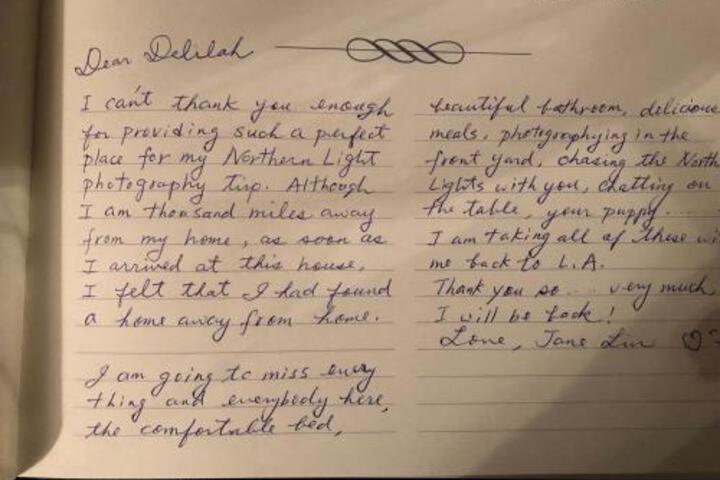 Dear Delilah
I can't thank you enough
for providing such a perfect
place for my Northern Light
photography trip. Although
I am thousand miles away
from my home, as soon as
I arrived at this house,
I felt that I had found
a home away from home.
I am going to miss every
thing and everybody here,
the comfortable bed,
beautiful bathroom, delicious
meals, photographying in the
front yard, chasing the North
Lights with you, chatting on
the table, your puppy.....
I am taking all of these wi
me back to L.A.
Thank you so.... very much
I will be back!
Love, Jane Lin